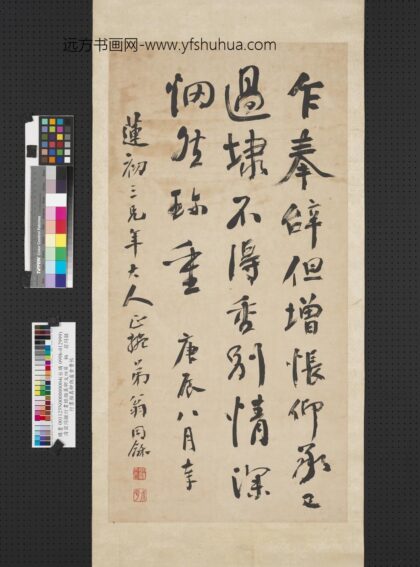 远方书画网-www.yfshuhua.com
乍奉辭但增悵仰承已
過埭不得別情深
惘然珍重 庚辰八月奉
蓮初三兄年大人正 弟翁同龢